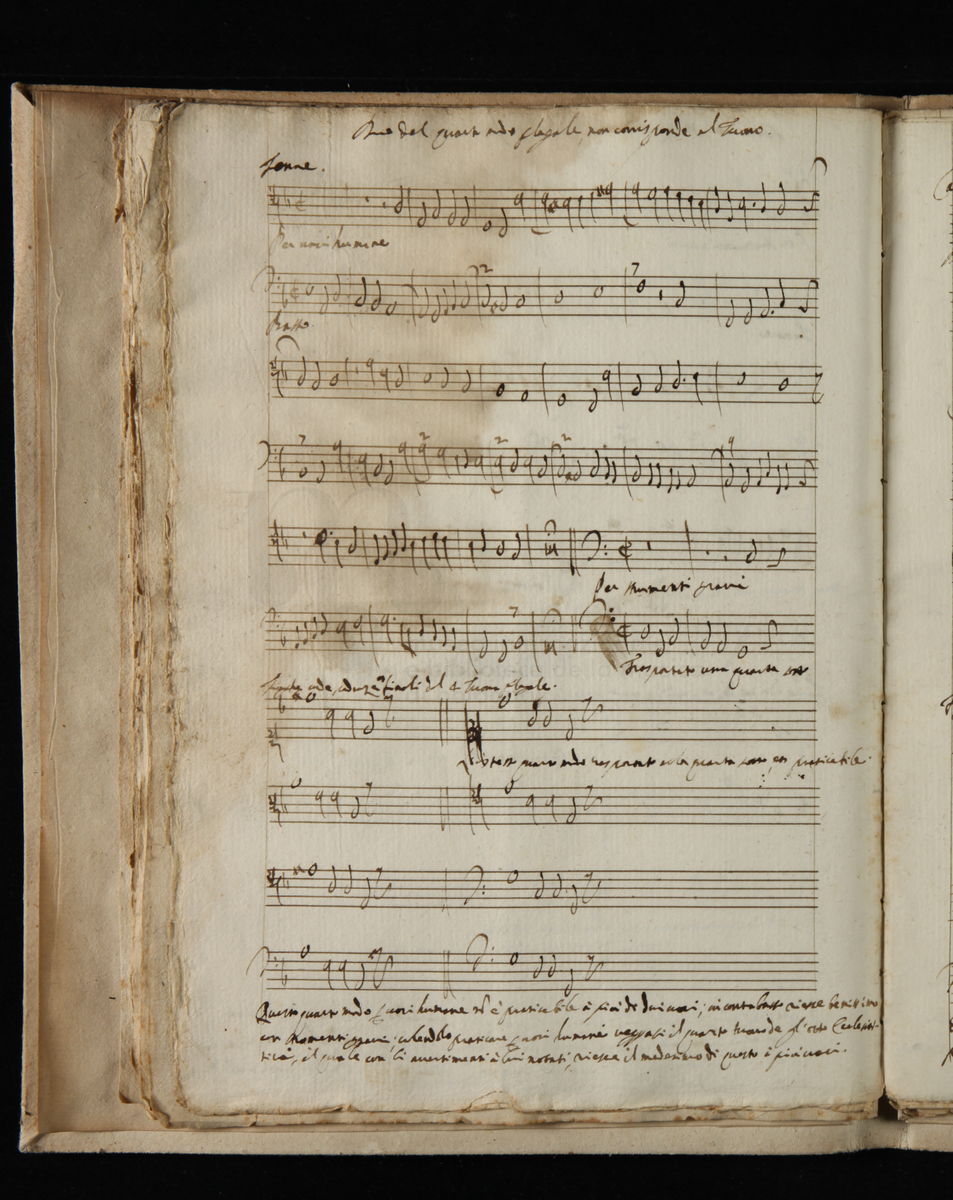 Duo del quarto modo plagale, non corrisponde al Tuono.
Tenore.
Per voci humane
7
2
Basso
7
2
2
2
9
Per strumenti gravi
7
Trasportato una quarta sotto
modo del 4 Tuono plagale.
L'istesso quarto modo trasportato alla quarta sotto, praticabile.
Questo quarto modo voci humane nõ è praticabile à più di dui voci; in contrabasso riesce benissimo
con stromenti gravi: volendolo praticare voci humane veggasi il quarto tuono de gl'otto Ecclesias-
tici, il quale con li avertimenti à lui notati, riesce il medesimo di questo à più voci.